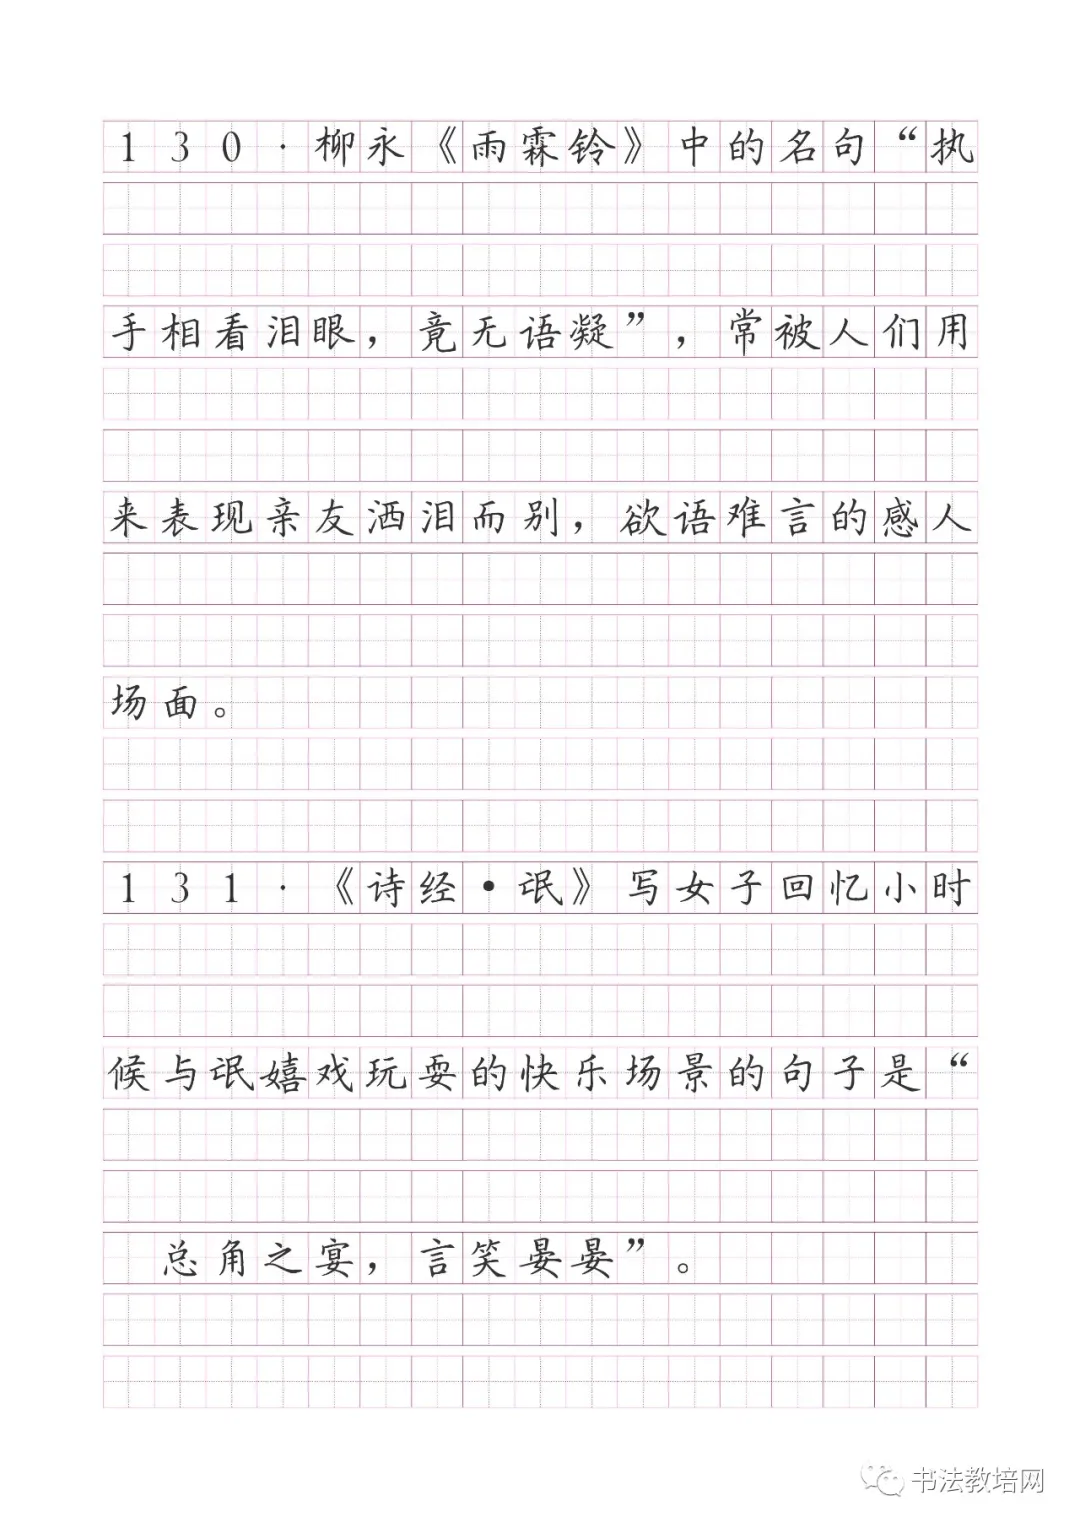 130·柳永《雨霖铃》中的名句“执
手相看泪眼，竟无语凝”，常被人们用
来表现亲友洒泪而别，欲语难言的感人
场面。
131·《诗经·氓》写女子回忆小时
候与氓嬉戏玩耍的快乐场景的句子是“
总角之宴，言笑晏晏”。
书法教培网